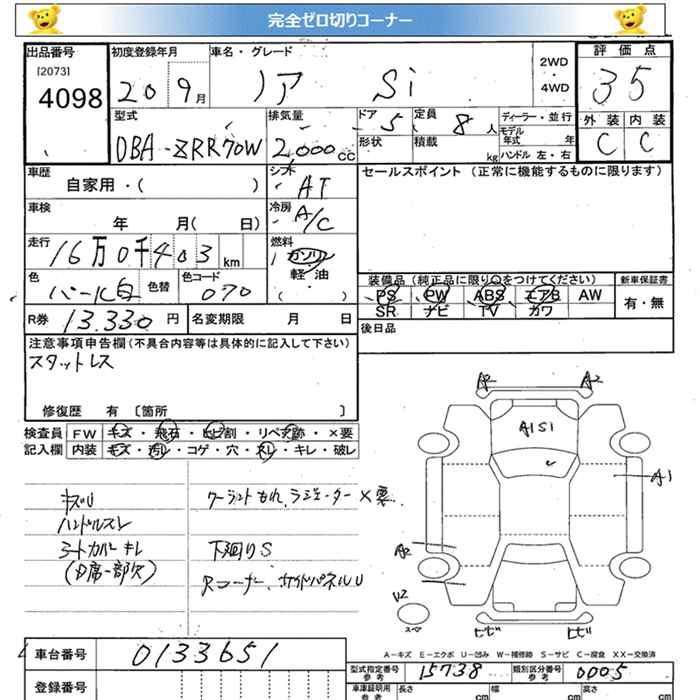 完全ゼロ切りコーナー
出品番号
[2073]
4098
初度登録年月
20 9月
車名・グレード
ノア Si
2WD
・
4WD
評価点
3 5
外装 内装
C C
型式
DBA-ZRR70W
排気量
2,000cc
ドア 5
形状
定員 8人
積載 kg
ディーラー・並行
モデル年式 年
ハンドル 左・右
車歴
自家用・( )
シフト
AT
セールスポイント (正常に機能するものに限ります)
車検
年 月( 日)
冷房
A/C
走行
16万0千403km
燃料
ガソリン
軽・油
( )
色
パール白
色替
色コード
070
装備品 (純正品に限り○をつけてください)
PS PW ABS エアB AW
SR ナビ TV カワ
新車保証書
有・無
R券 13.330円
名変期限 月 日
後日品
注意事項申告欄(不具合内容等は具体的に記入して下さい)
スタットレス
修復歴 有 〔箇所 〕
検査員 FW キズ・飛石・ヒビ割・リペア跡・×要
記入欄 内装 キズ・汚レ・コゲ・穴・スレ・キレ・破レ
キズU
ハンドルスレ
クーラントもれ、ラジエーター×要
シートカバーキレ
下廻りS
Rコーナー、サイドパネルU
A2 A2
A1S1
A1
A2
U2
スペア
ヒビ ヒビ
A-キズ E-エクボ U-凹み W-補修跡 S-サビ C-腐食 XX-交換済
車台番号 0133651
登録番号
型式指定番号
参考
15738
類別区分番号
参考
0005
車庫証明用
参考
長さ cm
幅 cm
高さ cm